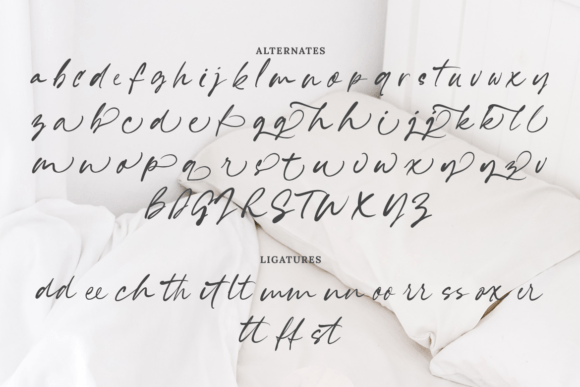 ALTERNATES
a b c d e f g h i j k l m n o p q r s t u v w x y
z a b c d e f g g h h i j j k k l l
m n n o p q r s t u v w x y y z v
B D G J R S T W X Y Z
LIGATURES
dd ee ch th it lt mm nn oo rr ss ox er
tt ff st